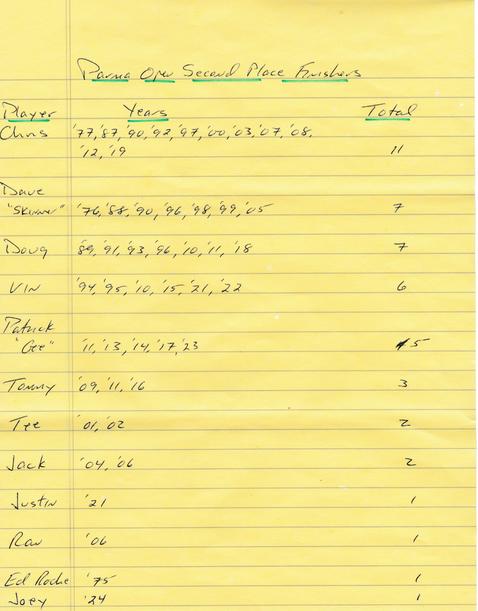 Parma Open Second Place Finishers
Player Years Total
Chris '77,'87,'90,'92,'97,'00,'03,'07,'08,
'12,'19 11
Dave
"Skinner" '76,'88,'90,'96,'98,'99,'05 7
Doug '89,'91,'93,'96,'10,'11,'18 7
Vin '94,'95,'10,'15,'21,'22 6
Patrick
"Gee" '11,'13,'14,'17,'23 5
Tommy '09,'11,'16 3
Tee '01,'02 2
Jack '04,'06 2
Justin '21 1
Rav '06 1
Ed Roche '75 1
Joey '24 1